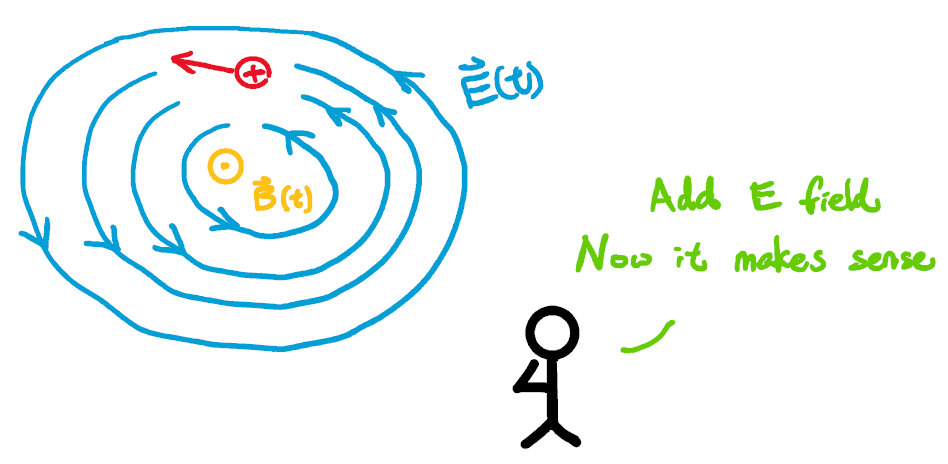 +
E⃗(t)
B⃗(t)
Add E field
Now it makes sense